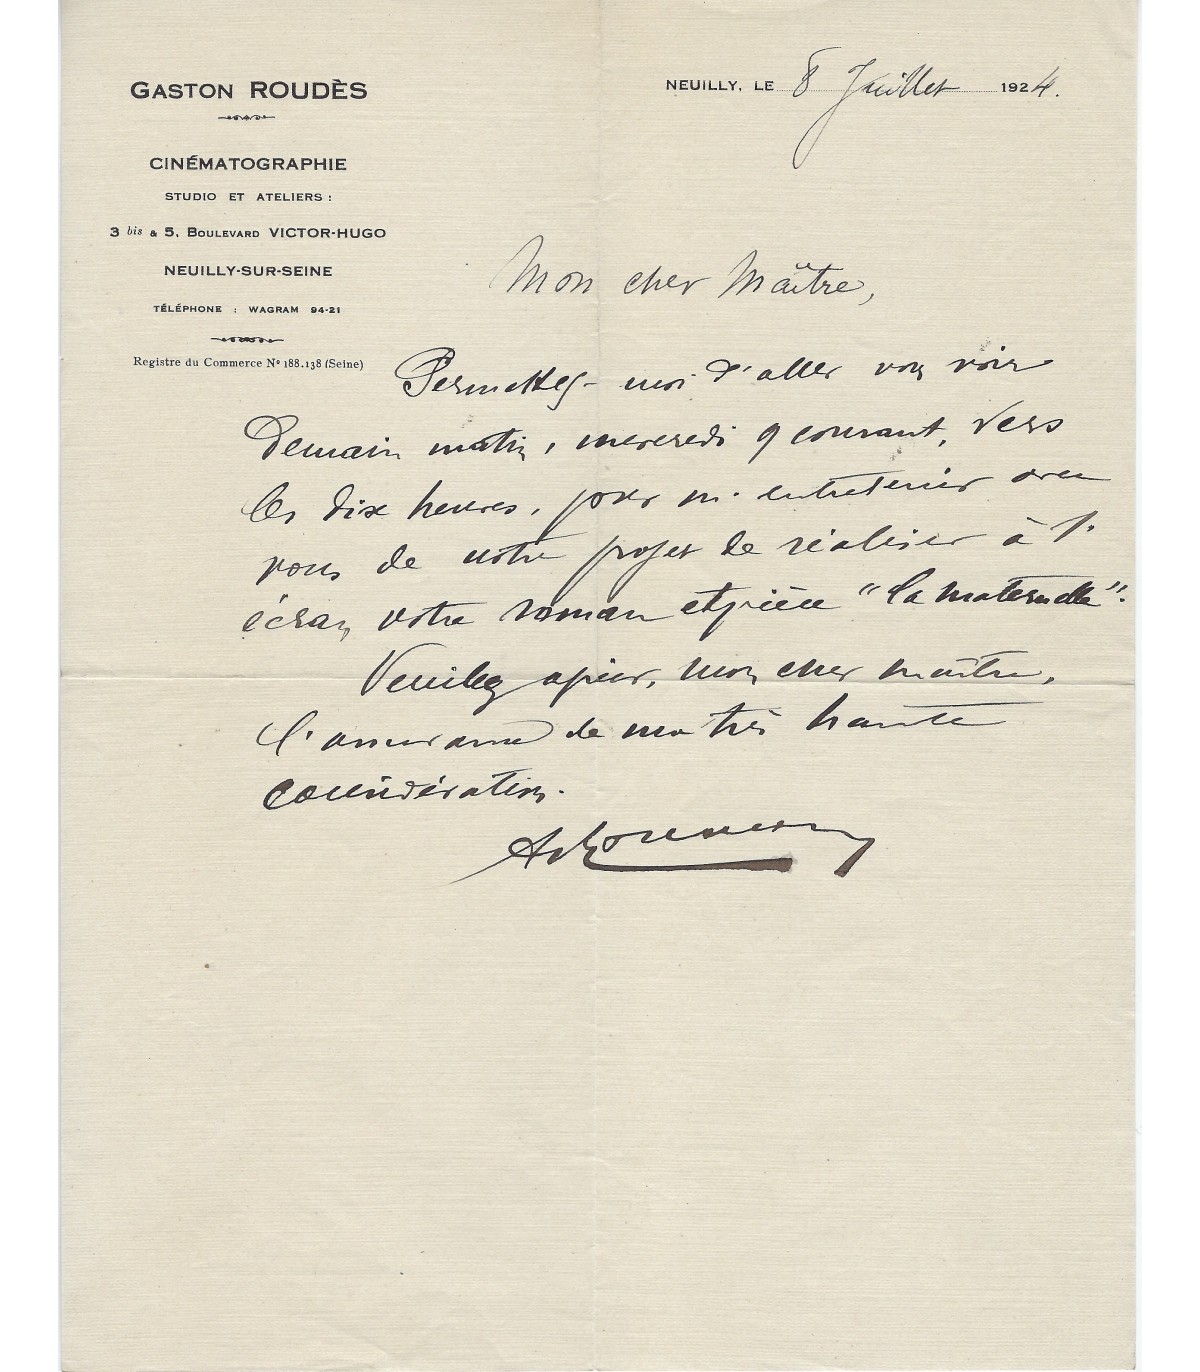 GASTON ROUDÈS
CINÉMATOGRAPHIE
STUDIO ET ATELIERS :
3 bis & 5, BOULEVARD VICTOR-HUGO
NEUILLY-SUR-SEINE
TÉLÉPHONE : WAGRAM 94-21
Registre du Commerce N° 188.138 (Seine)
NEUILLY, LE 8 Juillet 1924.
Mon cher Maître,
Permettez-moi d'aller vous voir
Demain matin, mercredi 9 courant, vers
les dix heures, pour m'entretenir avec
vous de notre projet de réaliser à l'
écran, votre roman et pièce "La Maternelle".
Veuillez agréer, mon cher maître,
l'assurance de ma très haute
considération.